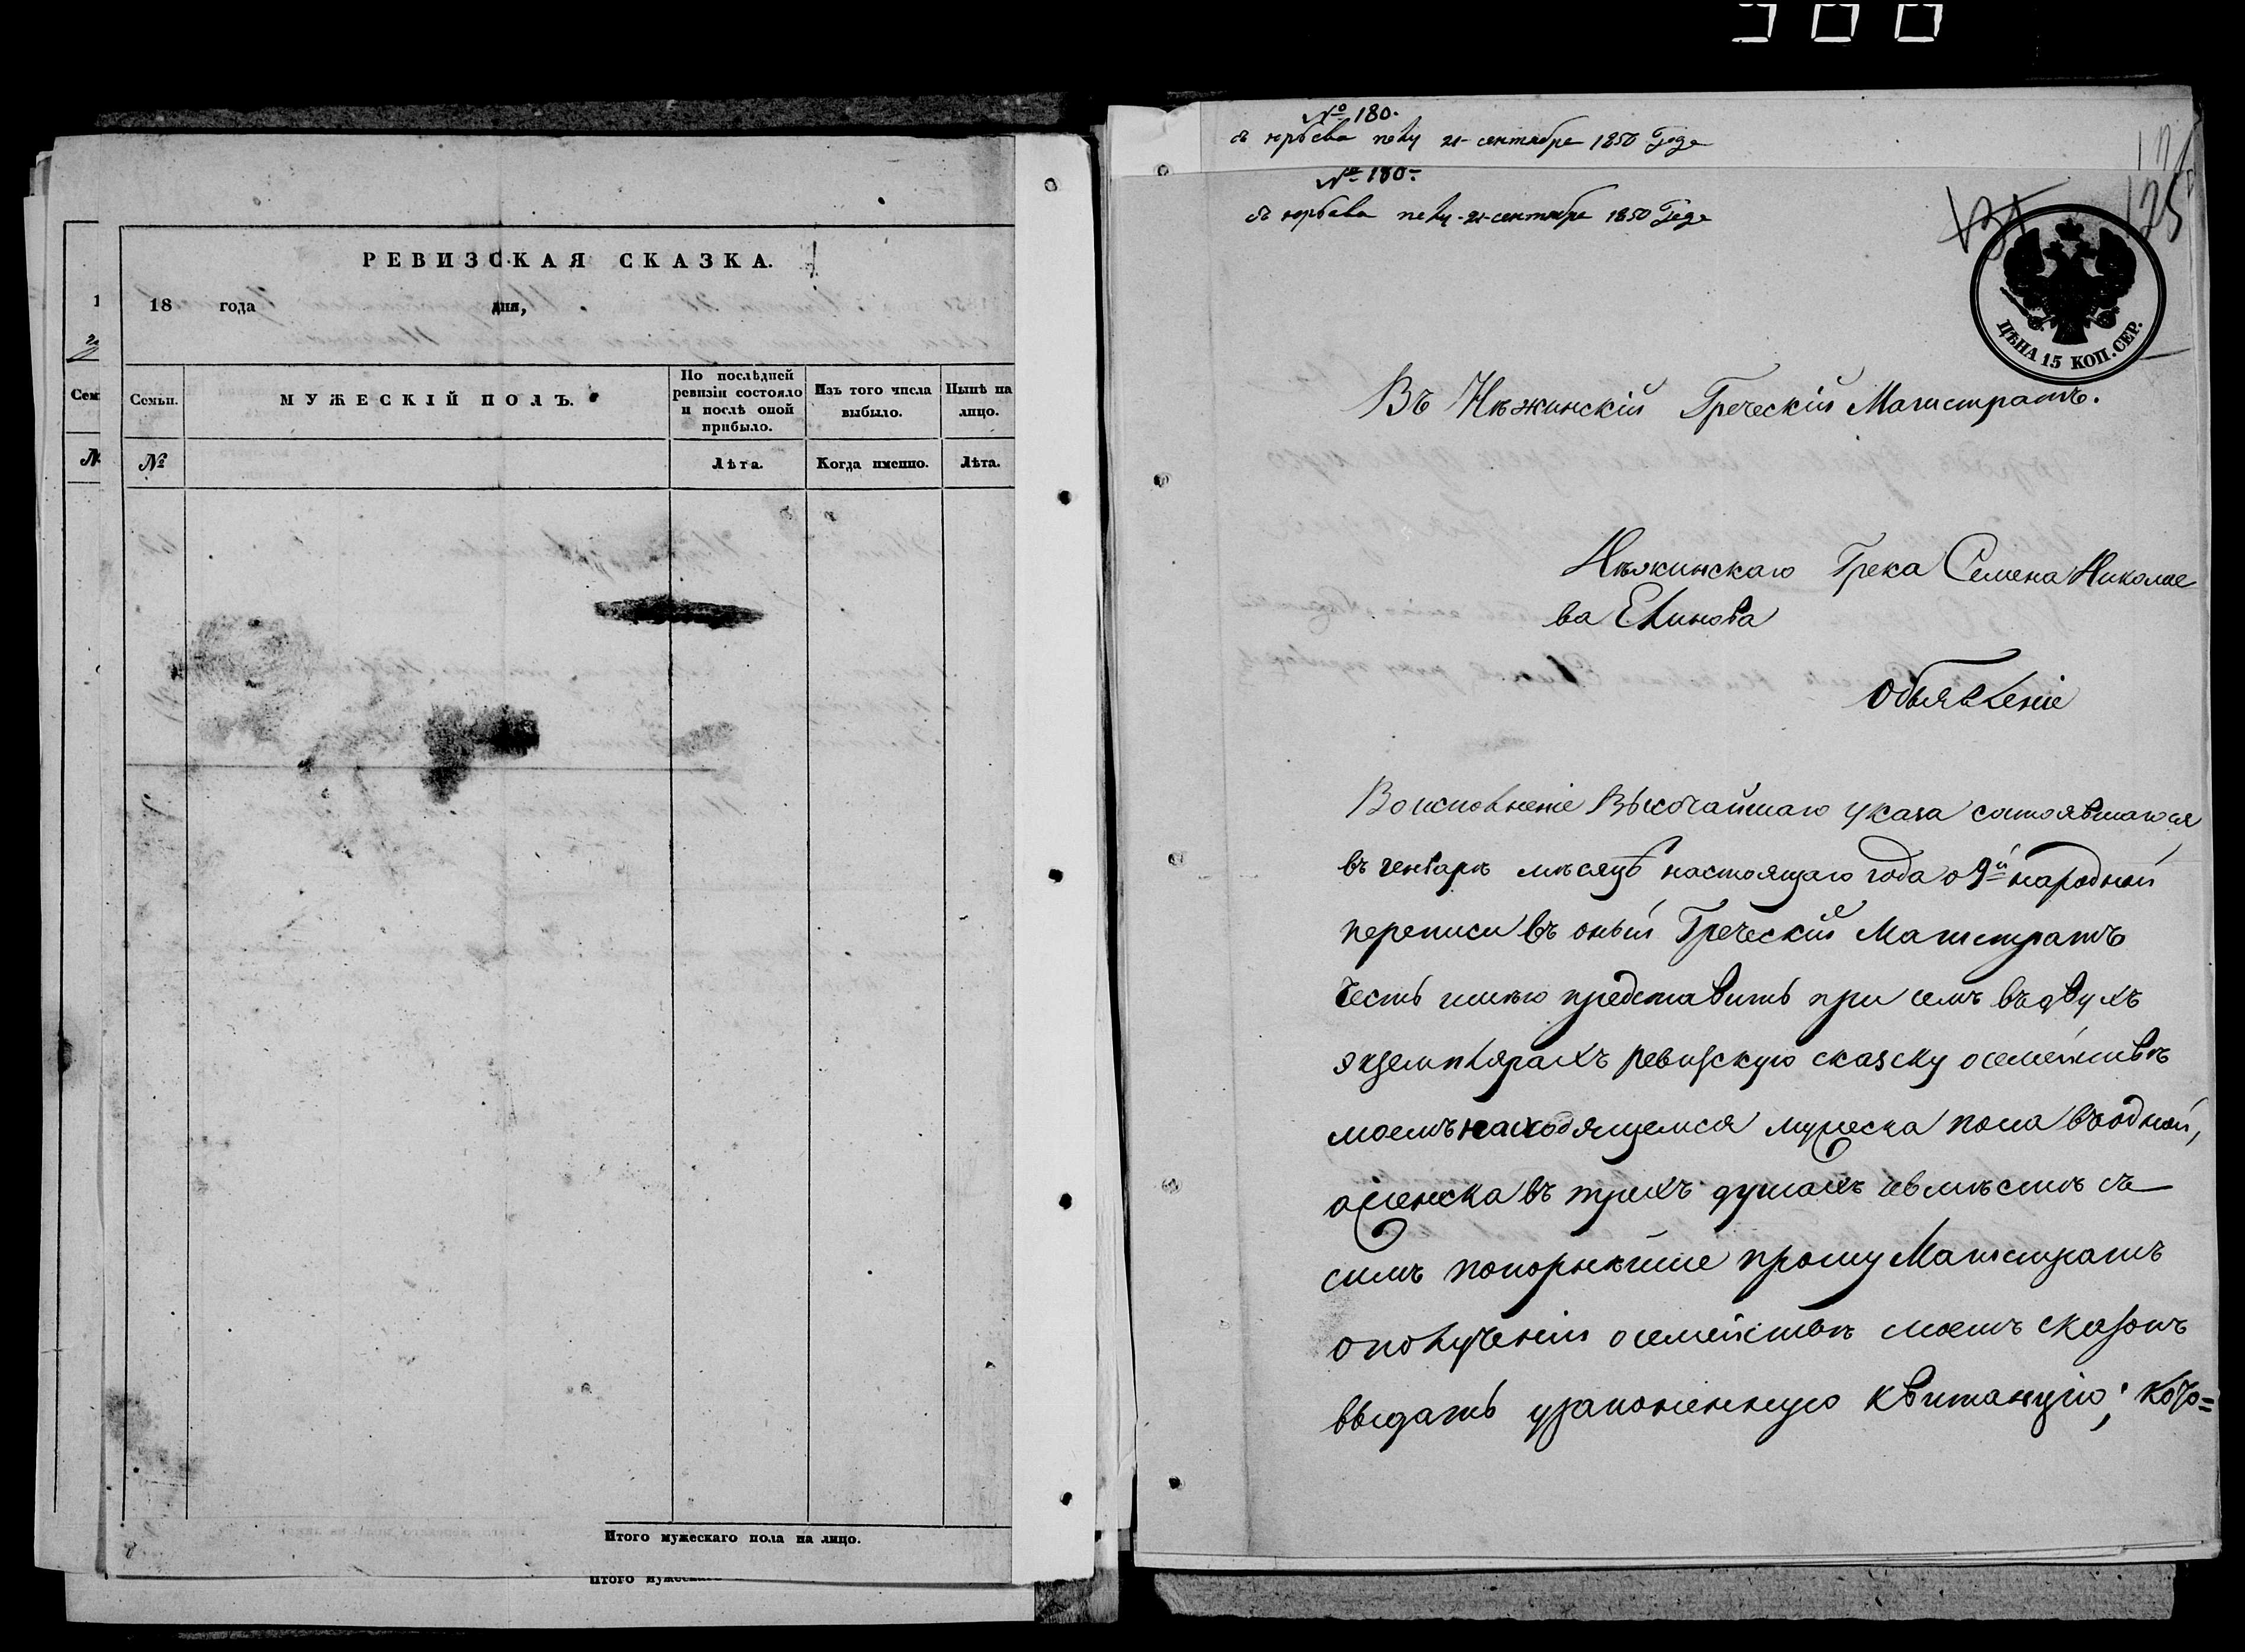 РЕВИЗСКАЯ СКАЗКА.
18 года дня,
Семьи.
МУЖЕСКІЙ ПОЛЪ.
По послѣдней ревизіи состояло и послѣ оной прибыло.
Изъ того числа выбыло.
Нынѣ на лицо.
№
Лѣта.
Когда именно.
Лѣта.
Итого мужескаго пола на лицо.
№ 180.
21 сентября 1850 Года
№ 180.
21 сентября 1850 Года
131
125
ЦѢНА 15 КОП. СЕР.
Въ Нѣжинскій Греческій Магистратъ.
Нѣжинскаго Грека Семена Николае
ва Елинова
Объявленіе
Во исполненіе Высочайшаго указа состоявшагося
въ генварѣ мѣсяцѣ настоящаго года о 9й народной
переписи въ оный Греческій Магистратъ
честь имѣю представить при семъ въ двухъ
экземплярахъ ревизскую сказку о семействѣ
моемъ находящемся мужеска пола въ одной,
а женска въ трехъ душахъ и вмѣстѣ съ
симъ покорнѣйше прошу Магистратъ
о полученіи о семействѣ моемъ сказокъ
выдать узаконенную квитанцію; кото=